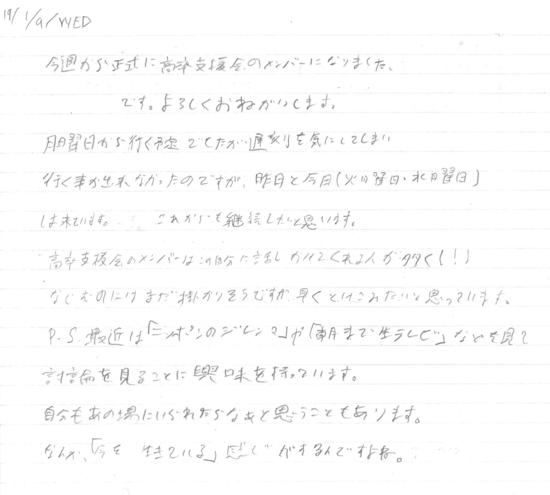 19/ 1/9/WED
今週から正式に高卒支援会のメンバーになりました、
です。よろしくおねがいします。
月曜日から行く予定でしたが遅刻を気にしてしまい
行く事が出来なかったのですが、昨日と今日(火曜日・水曜日)
は来ています。これからも継続したいと思います。
高卒支援会のメンバーはこの自分に話しかけてくれる人が多く(!)
なじむのにはまだ掛かりそうですが早くとけこみたいと思っています。
P.S. 最近は「ニッポンのジレンマ」や「朝まで生テレビ」などを見て
討論を見ることに興味を持っています。
自分もあの場にいられたらなぁと思うこともあります。
なんか、「今を生きている」感じがするんですよね。